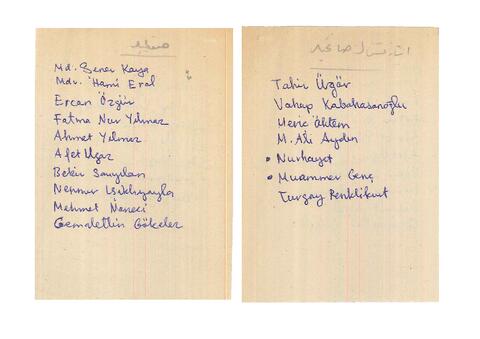 Md. Şener Kaya
Mdv. Hami Eral
Ercan Özgür
Fatma Nur Yılmaz
Ahmet Yılmaz
Afet Uçar
Bekir Sarıyılan
Mehmet
Cemalettin Gökeler
Tahir Üzgör
Vahap Kabahasanoğlu
M. Ali Aydın
• Nurhayat
• Muammer Genç
Turgay Renklikurt